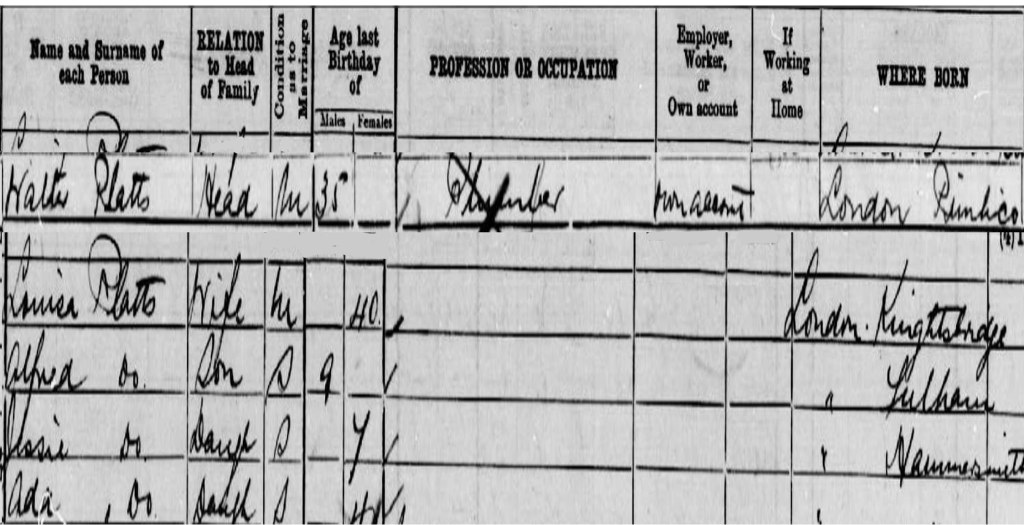 Name and Surname of each Person RELATION to Head of Family Condition as to Marriage Age last Birthday of Males Females PROFESSION OR OCCUPATION Employer, Worker, or Own account If Working at Home WHERE BORN
Walter Platts Head M 35 Plumber own account London Pimlico
Louisa Platts Wife M 40 London Knightsbridge
Alfred Do. Son S 9 " Fulham
Do. Daugh S 7 " Hammersmith
Ada Do. Daugh S